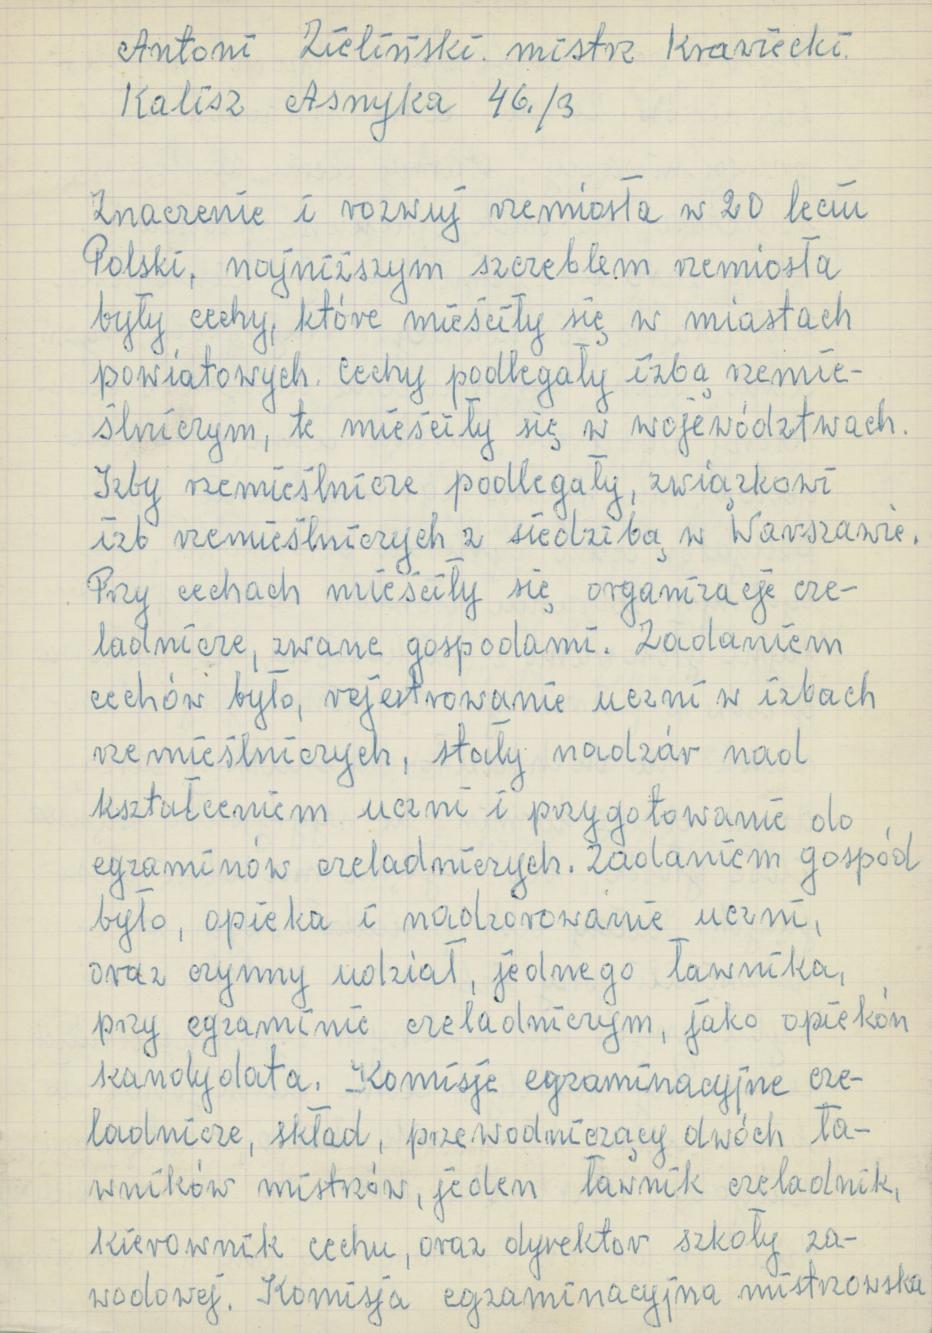 Antoni Zieliński. mistrz Krawiecki.
Kalisz Asnyka 46./3
Znaczenie i rozwuj rzemiosła w 20 leciu
Polski, najniższym szczeblem rzemiosła
były cechy, które mieściły się w miastach
powiatowych. Cechy podlegały izbą rzemie-
ślniczym, te mieściły się w województwach.
Izby rzemieślnicze podlegały, związkowi
izb rzemieślniczych z siedzibą w Warszawie.
Przy cechach mieściły się organizacje cze-
ladnicze, zwane gospodami. Zadaniem
cechów było, rejestrowanie uczni w izbach
rzemieślniczych, stały nadzór nad
kształceniem uczni i przygotowanie do
egzaminów czeladniczych. Zadaniem gospód
było, opieka i nadzorowanie uczni,
oraz czynny udział, jednego ławnika,
przy egzaminie czeladniczym, jako opiekón
kandydata. Komisje egzaminacyjne cze-
ladnicze, skład, przewodniczący dwóch ła-
wników mistrzów, jeden ławnik czeladnik,
kierownik cechu, oraz dyrektor szkoły za-
wodowej. Komisja egzaminacyjna mistrzowska